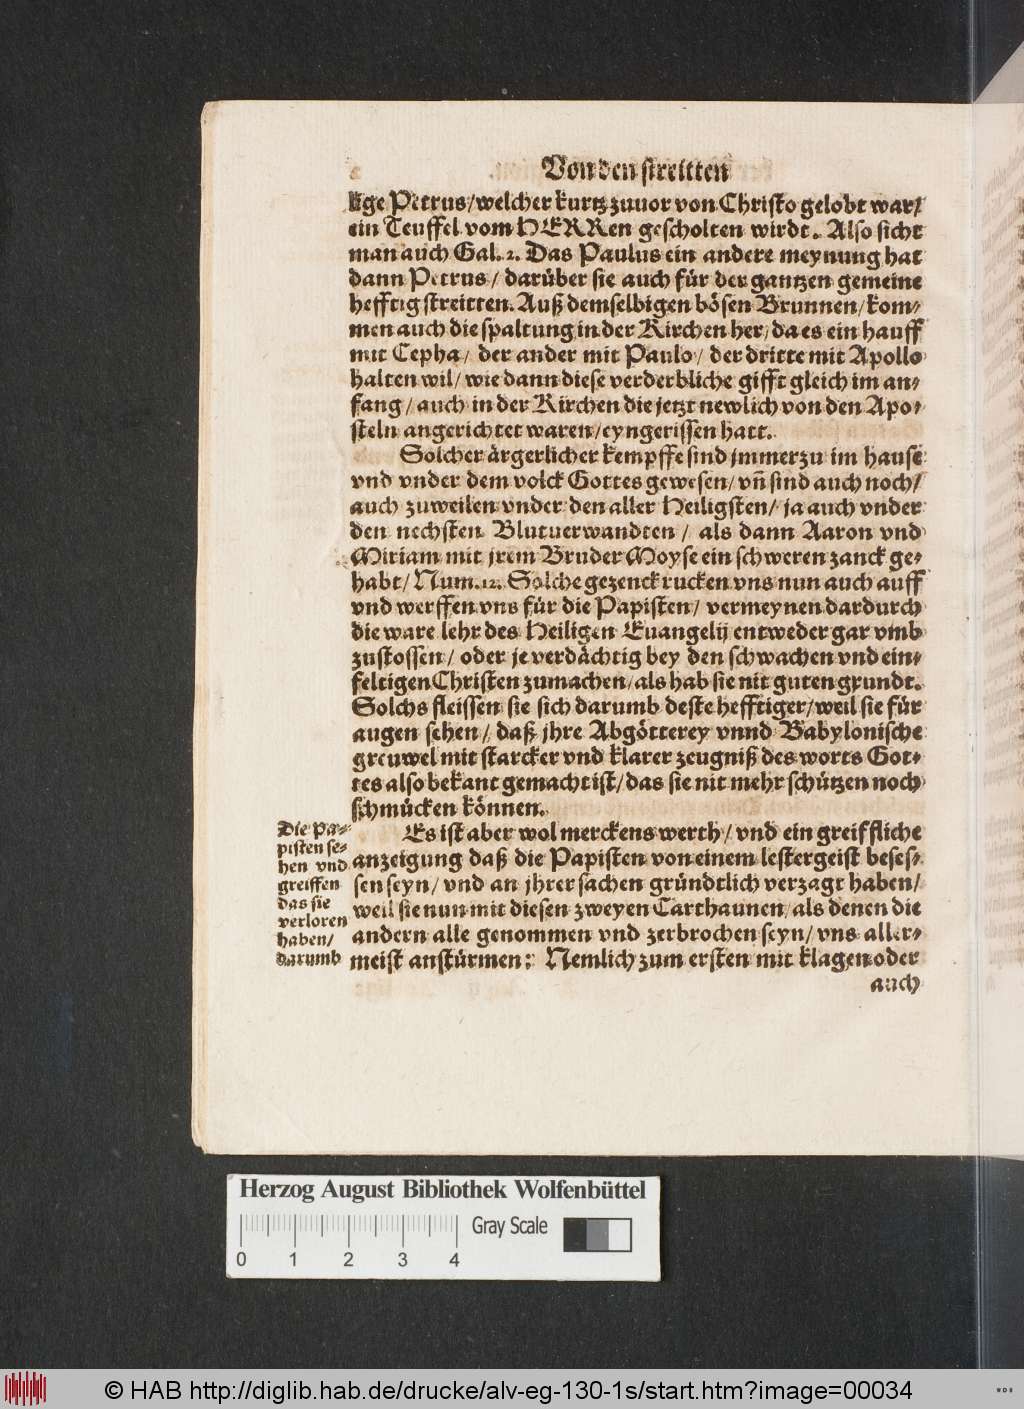 Von den streitten
lige Petrus/welcher kurtz zuuor von Christo gelobt war/
ein Teuffel vom HERRen gescholten wirdt. Also sicht
man auch Gal. 2. Das Paulus ein andere meynung hat
dann Petrus/ darüber sie auch für der gantzen gemeine
hefftig streitten. Auß demselbigen bösen Brunnen/kom-
men auch die spaltung in der Kirchen her/da es ein hauff
mit Cepha/ der ander mit Paulo/ der dritte mit Apollo
halten wil/ wie dann diese verderbliche gifft gleich im an-
fang/auch in der Kirchen die jetzt newlich von den Apo-
steln angerichtet waren/eyngerissen hatt.
Solcher ärgerlicher kempffe sind jmmerzu im hause
vnd vnder dem volck Gottes gewesen/vñ sind auch noch/
auch zuweilen vnder den aller Heiligsten/ ja auch vnder
den nechsten Blutuerwandten/ als dann Aaron vnd
Miriam mit jrem Bruder Moyse ein schweren zanck ge-
habt/Num. 12. Solche gezenck rucken vns nun auch auff
vnd werffen vns für die Papisten/ vermeynen dardurch
die ware lehr des Heiligen Euangelij entweder gar vmb
zustossen/ oder je verdächtig bey den schwachen vnd ein-
feltigen Christen zumachen/als hab sie nit guten grundt.
Solchs fleissen sie sich darumb deste hefftiger/weil sie für
augen sehen/ daß jhre Abgötterey vnnd Babylonische
greuwel mit starcker vnd klarer zeugniß des worts Got-
tes also bekant gemacht ist/das sie nit mehr schützen noch
schmücken können.
Es ist aber wol merckens werth/vnd ein greiffliche
anzeigung daß die Papisten von einem lestergeist beses-
sen seyn/vnd an jhrer sachen gründtlich verzagt haben/
weil sie nun mit diesen zweyen Carthaunen/als denen die
andern alle genommen vnd zerbrochen seyn/vns aller-
meist anstürmen: Nemlich zum ersten mit klagen oder
auch
Die Pa-
pisten se-
hen vnd
greiffen
das sie
verloren
haben/
darumb
Herzog August Bibliothek Wolfenbüttel
Gray Scale
0 1 2 3 4
© HAB http://diglib.hab.de/drucke/alv-eg-130-1s/start.htm?image=00034